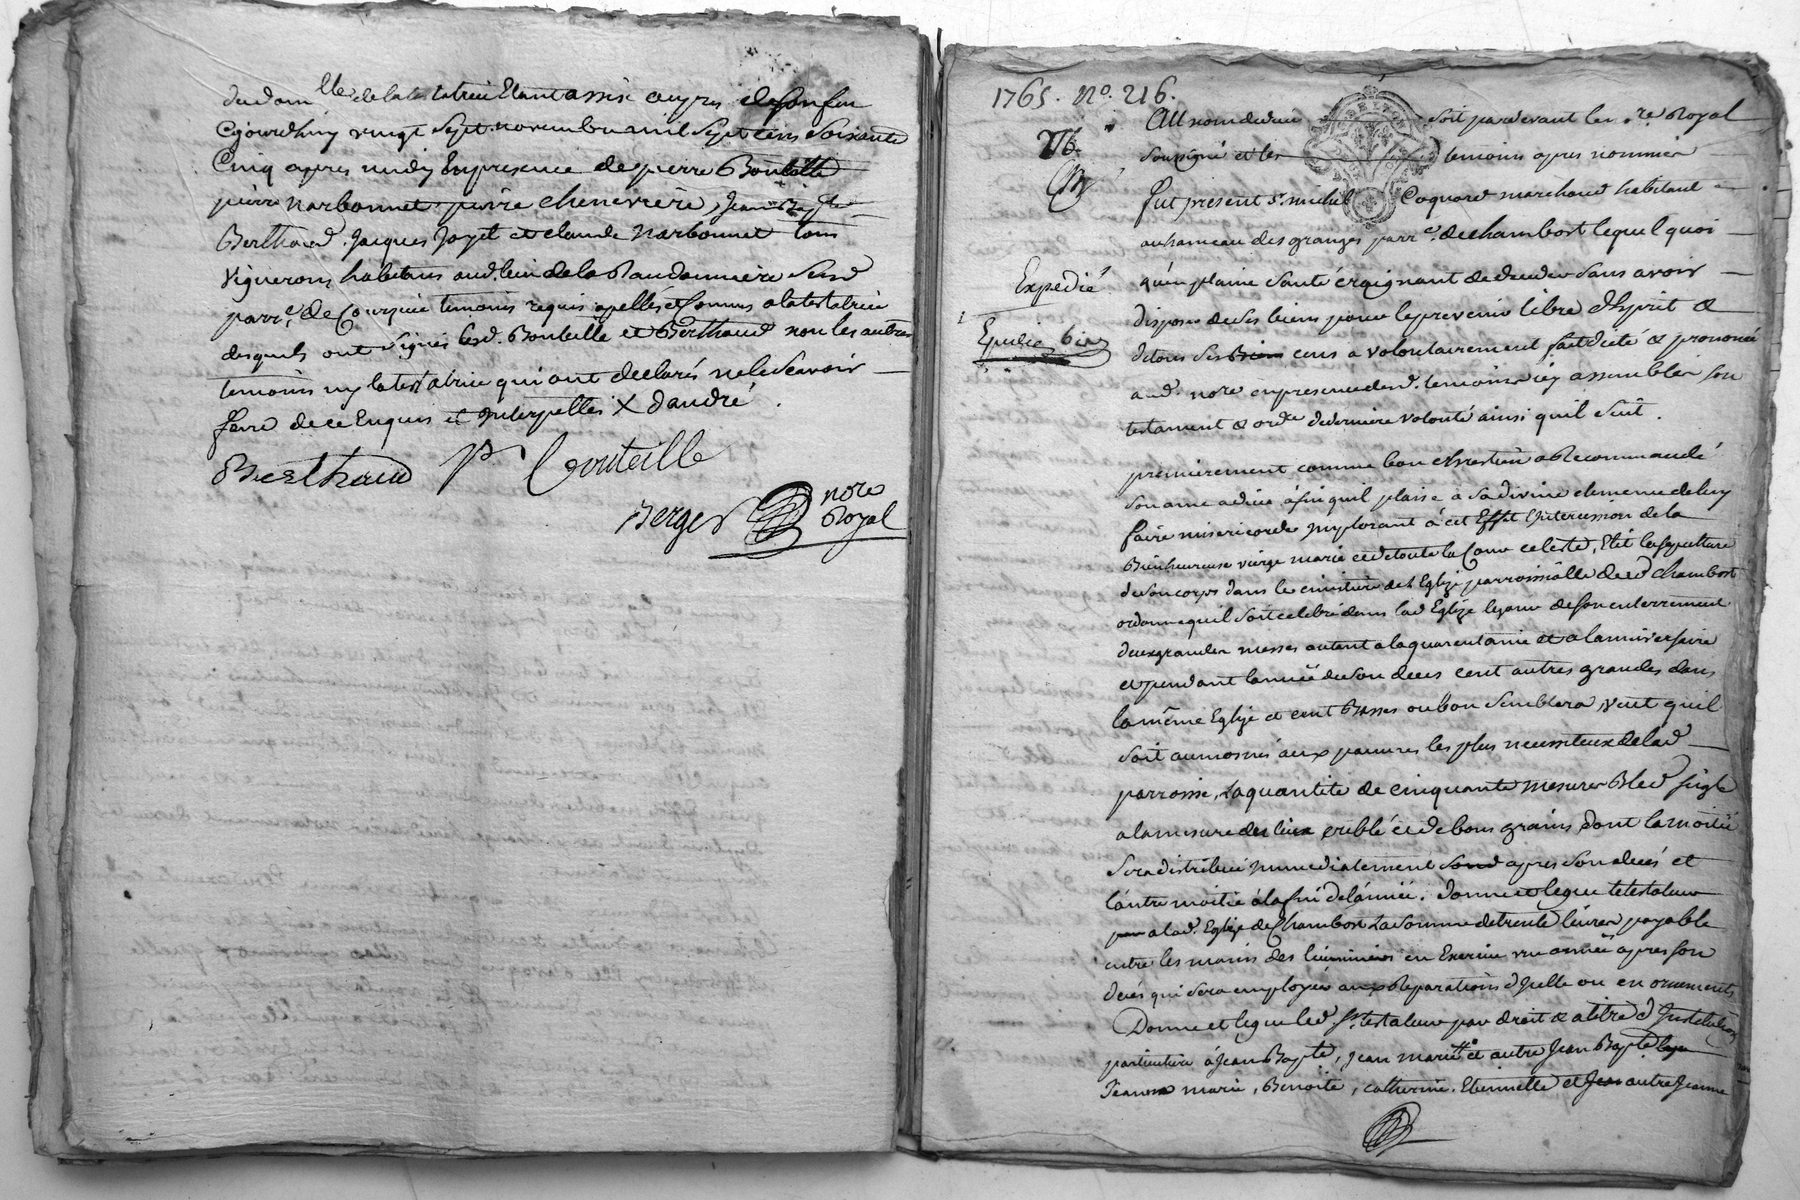 du dom.lle de la testatrice Etant assise aupres de son feu
cejourd'huy vingt sept novembre mil sept cens soixante
Cinq apres midy En presence de pierre Bouteille
pierre narbonnet, pierre cheneviere, Jean Bapte
Berthaud, Jacques Jayet et claude Narbonnet tous
vignerons habitans aud. lieu de la
parr.e de temoins requis apellés et connus a la testatrice
desquels ont signés lesd. Bouteille et Berthaud non les autres
temoins ny la testatrice qui ont declarés ne le scavoir
faire de ce Enquis et Interpellés X dandré.
Berthaud P Bouteille
Berger nore
Royal
1765. No. 216.
Au nom de dieu soit pardevant le n.re Royal
216.
soussigné et les temoins apres nommés
fut present Sr. michel Coquard marchand habitant
au hameau des granges parr.e de chambost lequel quoi
Expedié
qu'en plaine santé craignant de deceder sans avoir
disposé de ses biens pour le prevenir libre d'Esprit &
Expedié bis
de tous ses sens a volontairement fait dicté & prononcé
aud. nore en presence desd. temoins icy assemblés son
testament & ord.ce de derniere volonté ainsi quil suit.
premierement comme bon chrestien a Recommandé
son ame a dieu afin quil plaise à sa divine clemence de luy
faire misericorde Implorant à cet Effet l'Intercession de la
Bienheureuse vierge marie et de toute la Cour celeste, Elit la sepulture
de son corps dans le cimetiere de l'Eglize parroissialle dud chambost
ordonne quil soit celebré dans lad Eglize le jour de son enterrement
deux grandes messes autant a la quarantaine et a l'anniversaire
et pendant l'année de son deces cent autres grandes dans
la même Eglize et cent Basses ou bon semblera, veut quil
soit aumosné aux pauvres les plus necessiteux de lad
parroisse, la quantité de cinquante mesures Bled sigle
a la mesure des lieux criblé et de bons grains dont la moitié
sera distribué Immediatement apres son deces et
l'autre moitié à la fin de l'année. donne et legue le testateur
a lad. Eglize de Chambost La somme de trente livres payable
entre les mains des luminiers en Exercice un année apres son
deces qui sera employée aux Reparations d'Icelle ou en ornements
Donne et legue led Sr. testateur par droit & a titre d'Institution
particuliere à Jean Bapte, Jean marie et autre Jean Bapte
Jeanne marie, Benoite, catherine, Etiennette et autre Jeanne